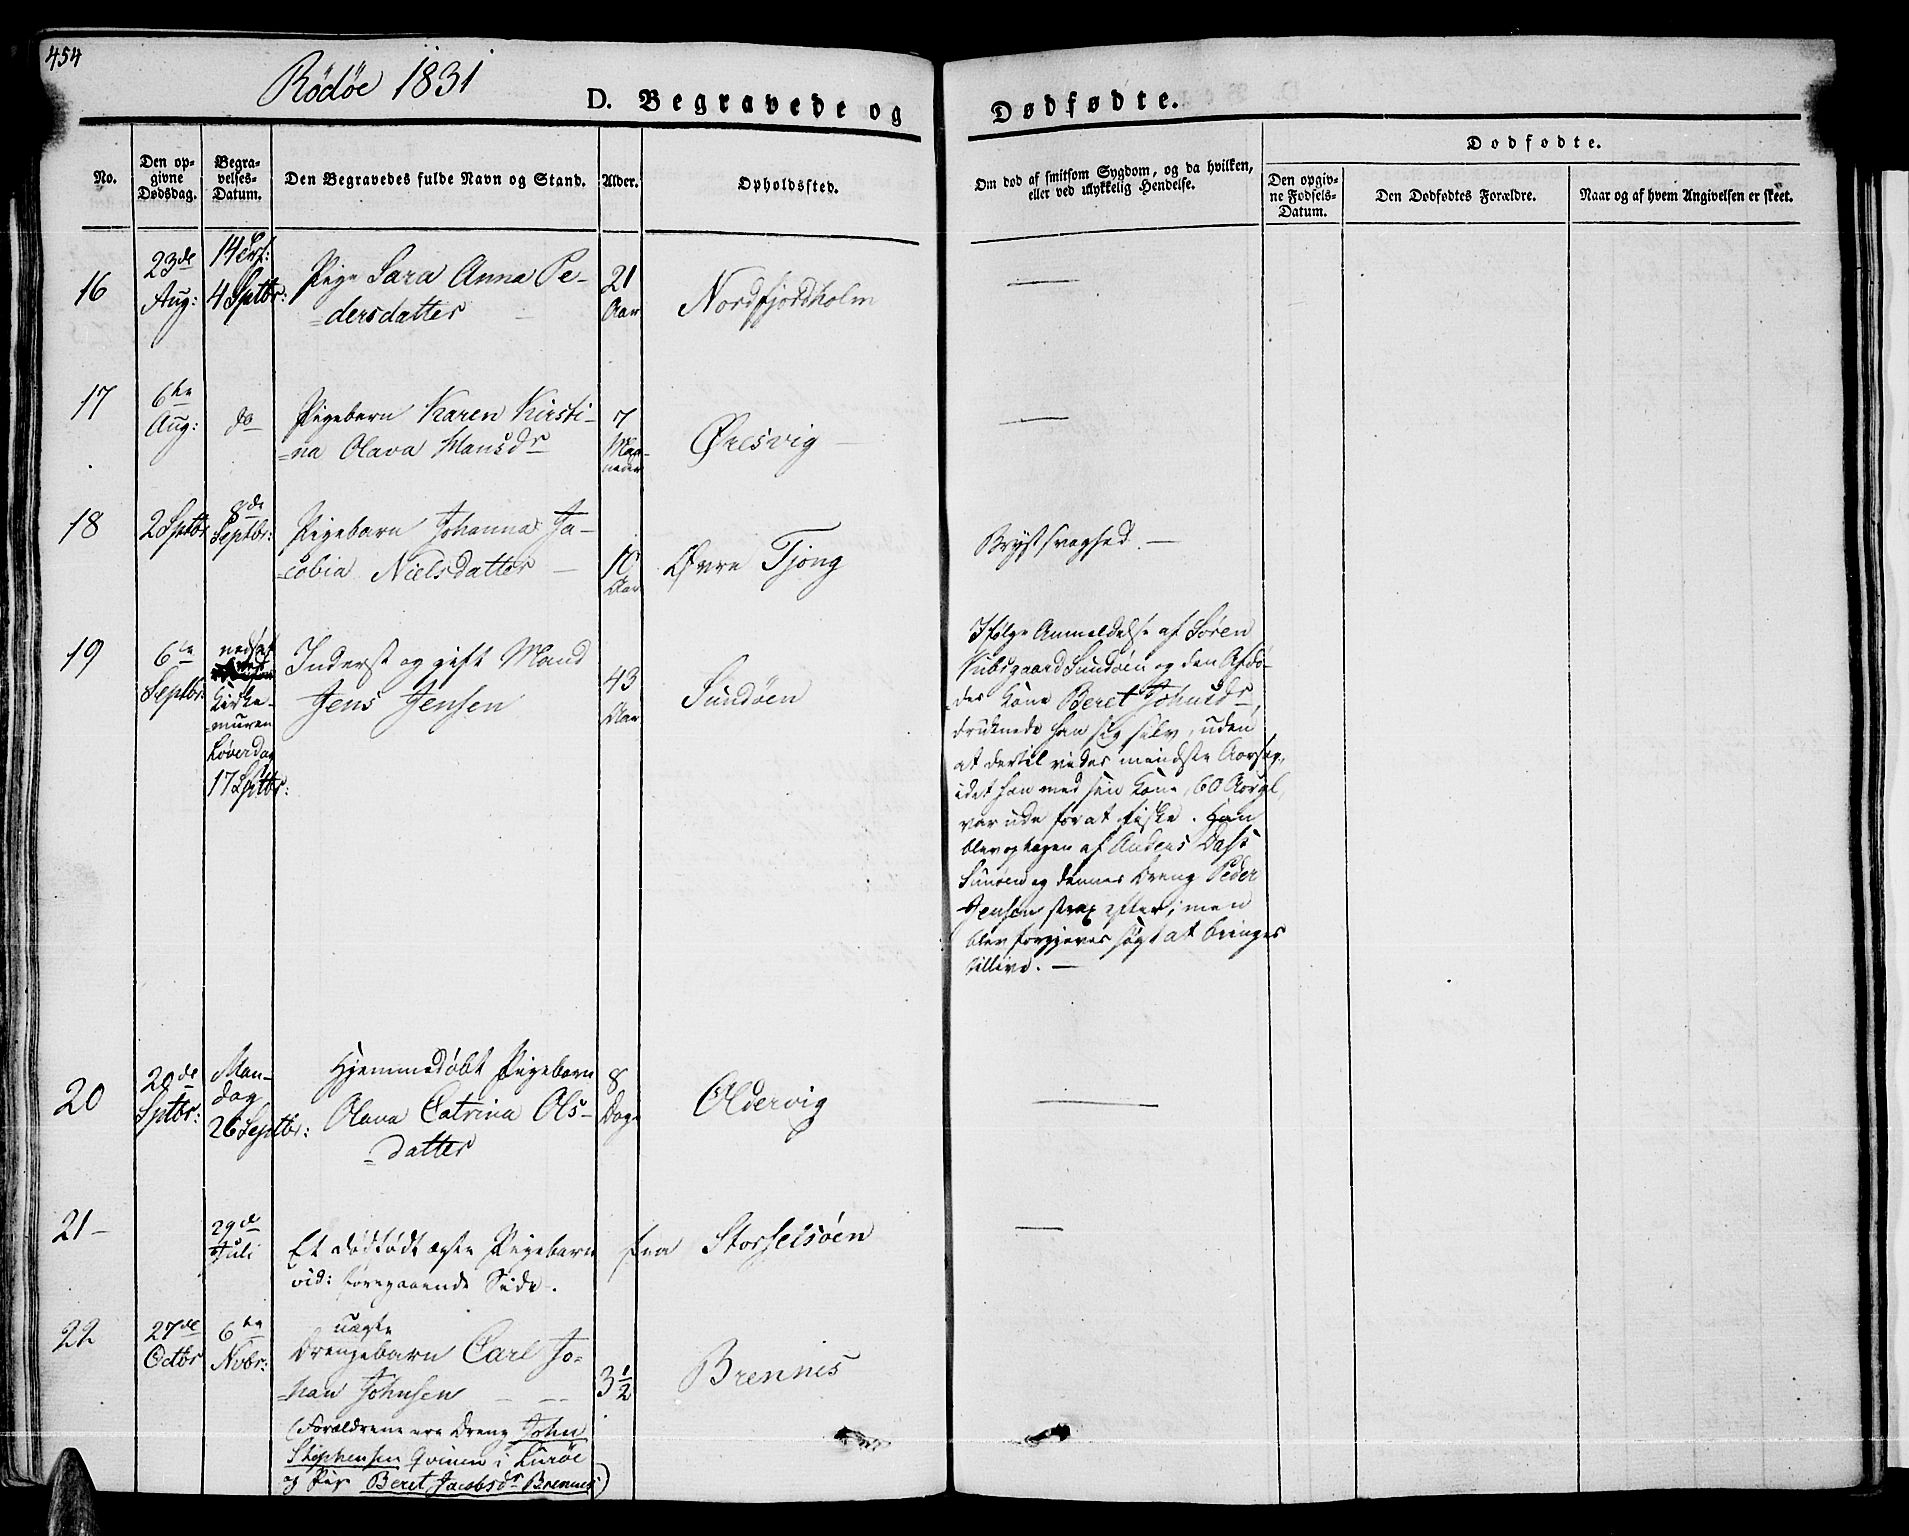 454
Rödöe 1831
D. Begravede og
Dødfødte.
No.
Den op-
givne
Dødsdag.
Begra-
velses-
Datum.
Den Begravedes fulde Navn og Stand.
Alder.
Opholdssted.
Om død af smitsom Sygdom, og da hvilken,
eller ved ulykkelig Hendelse.
Dødfødte.
Den opgiv-
ne Fødsels-
Datum.
Den Dødfødtes Forældre.
Naar og af hvem Angivelsen er skeet.
16
23de
Aug:
4 Sptbr:
Pige Sara Anna Pe-
=dersdatter
21
Aar
Nordfjordholm
—
17
6te
Aug:
do
Pigebarn Karen Kirsti-
=na Olava Hansdr
7
Maa-
neder
Øresvig —
—
18
2 Sptbr
8de
Septbr:
Pigebarn Johanna Ja-
=cobia Nielsdatter —
10
Aar
Øvre Tjong
Brystsvaghed. —
19
6te
Septbr:
nedsat
Kirke-
=muren
Løverdag
17 Sptbr:
Inderst og gift Mand
Jens Jensen
43
Aar
Sundöen
Ifølge Anmeldelse af Sören
Sundöen og den Afdö-
des Kone Beret Johnsdr,
druknede han sig selv, uden
at dertil vides mindste Aarsag,
idet han med sin Kone, 60 Aar gl,
var ude for at fiske. Han
blev optagen af Anders Dass
Sunöen og dennes Dreng Peder
Jensen strax efter; men
blev forgjeves søgt at bringes
tillive. —
20
20de
Sptbr:
Man-
dag
26 Septbr:
Hjemmedöbt Pigebarn
Olava Catrina Ols-
=datter
8
Dage
Oldervig
—
21 —
29de
Juli
Et dödfödt ægte Pigebarn
vid: foregaaende Side.
fra Storselsöen
—
22
27de
Octbr
6te
Nvbr:
uægte
Drengebarn Carl Jo-
=han Johnsen
3 1/2
Brennes
(Forældrene ere Dreng John
Stephensen Qvinen i Luröe
og Pige Beret Jacobsdr Brennes)